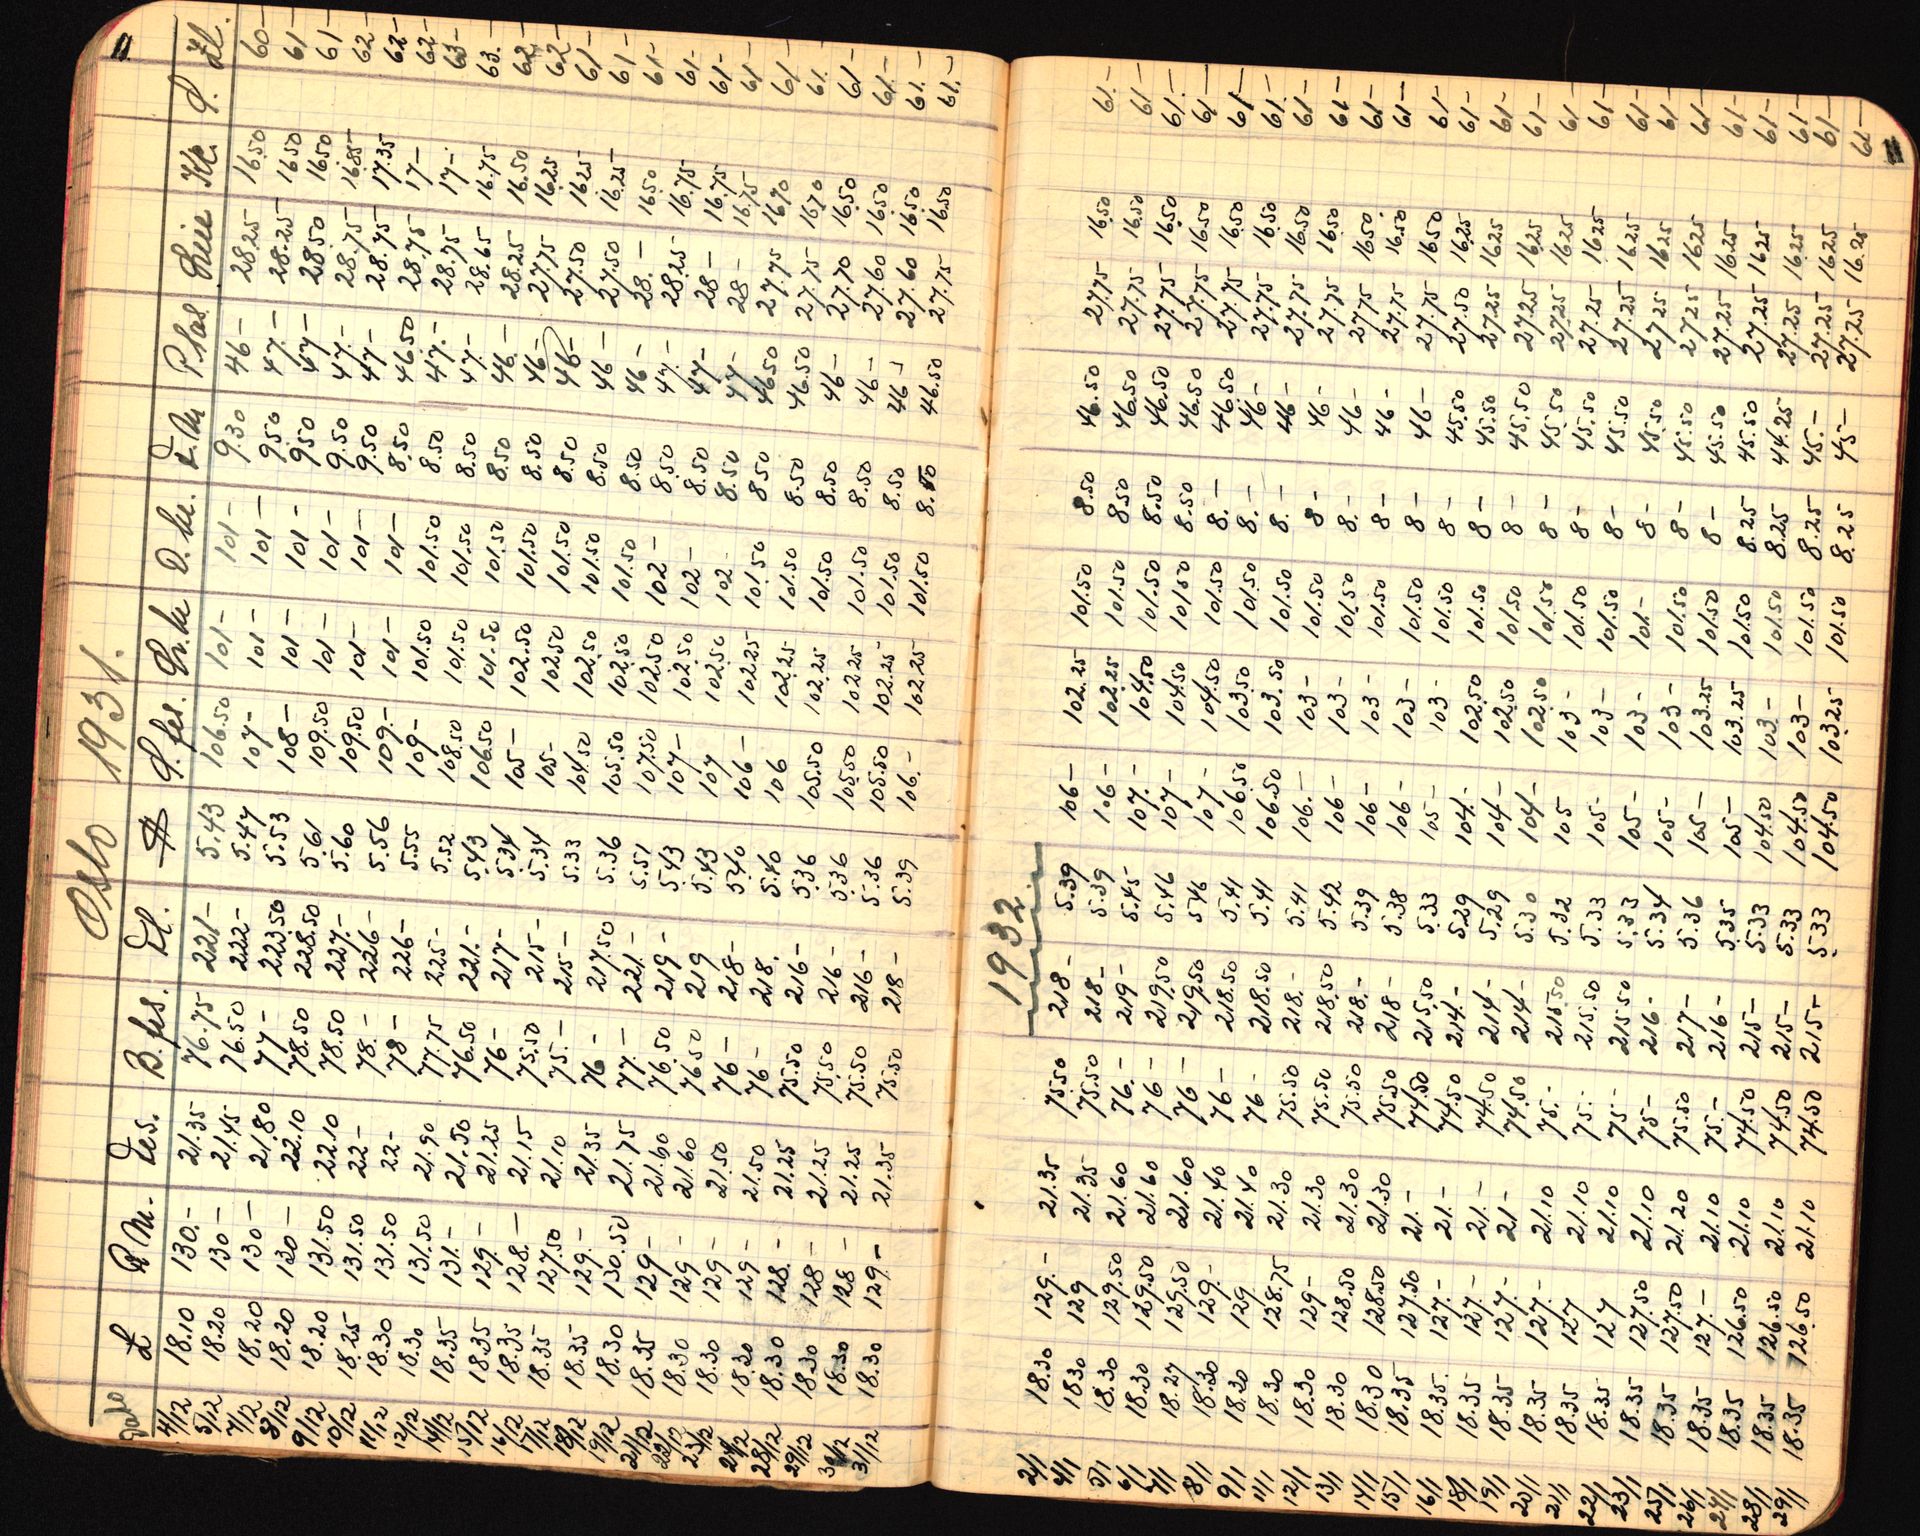 Oslo 1931.
Dato £ R.M. Frs. B.frs. Fl. $ S.frs. Sv.kr D.kr. F.M Ptas Lire Kc. P. Zl.
4/12 18.10 130.- 21.35 76.75 221- 5.43 106.50 101- 101- 9.30 46- 28.25 16.50 60-
5/12 18.20 130- 21.45 76.50 222- 5.47 107- 101- 101- 9.50 47- 28.25 16.50 61-
7/12 18.20 130- 21.80 77- 223.50 5.53 108- 101- 101- 9.50 47- 28.50 16.50 61-
8/12 18.20 130- 22.10 78.50 228.50 5.61 109.50 101- 101- 9.50 47.- 28.75 16.85 62-
9/12 18.20 131.50 22.10 78.50 227.- 5.60 109.50 101- 101- 9.50 47- 28.75 17.35 62-
10/12 18.25 131.50 22- 78.- 226- 5.56 109- 101- 101- 8.50 46.50 28.75 17- 62-
11/12 18.30 131.50 22- 78- 226- 5.55 109- 101.50 101.50 8.50 47.- 28.75 17- 63-
12/12 18.30 131.50 21.90 77.75 225- 5.52 108.50 101.50 101.50 8.50 47.- 28.65 16.75 63.-
14/12 18.35 131.- 21.50 76.50 221.- 5.43 106.50 101.50 101.50 8.50 46.- 28.25 16.50 62-
15/12 18.35 129.- 21.25 76- 217- 5.34 105- 102.50 101.50 8.50 46- 27.75 16.25 62-
16/12 18.35 128.- 21.15 75.50 215- 5.34 105- 102.50 101.50 8.50 46- 27.50 16.25 61-
17/12 18.35 127.50 21.10 75.- 215- 5.33 104.50 102.50 101.50 8.50 46- 27.50 16.25 61-
18/12 18.35 129.- 21.35 76- 217.50 5.36 105.50 102.50 101.50 8.50 46- 28.- 16.50 61-
19/12 18.30 130.50 21.75 77.- 221.- 5.51 107.50 102.50 102- 8.50 47- 28.25 16.75 61-
21/12 18.35 129- 21.60 76.50 219- 5.43 107- 102.50 102- 8.50 47- 28- 16.75 61-
22/12 18.30 129- 21.60 76.50 219 5.43 107 102.50 102 8.50 47- 28- 16.75 61-
23/12 18.30 129- 21.50 76- 218- 5.40 106- 102.25 101.50 8.50 46.50 27.75 16.70 61-
24/12 18.30 129- 21.50 76- 218. 5.40 106 102.25 101.50 8.50 46.50 27.75 16.70 61.
28/12 18.30 128.- 21.25 75.50 216- 5.36 105.50 102.25 101.50 8.50 46- 27.70 16.50 61-
29/12 18.30 128- 21.25 75.50 216- 5.36 105.50 102.25 101.50 8.50 46- 27.60 16.50 61.-
30/12 18.30 128- 21.25 75.50 216- 5.36 105.50 102.25 101.50 8.50 46- 27.60 16.50 61.-
31/12 18.30 129.- 21.35 75.50 218- 5.39 106.- 102.25 101.50 8.50 46.50 27.75 16.50 61.-
1932
2/1 18.30 129.- 21.35 75.50 218- 5.39 106- 102.25 101.50 8.50 46.50 27.75 16.50 61.-
4/1 18.30 129 21.35 75.50 218- 5.39 106- 102.25 101.50 8.50 46.50 27.75 16.50 61-
5/1 18.30 129.50 21.60 76.- 219- 5.45 107.- 104.50 101.50 8.50 46.50 27.75 16.50 61.-
6/1 18.30 129.50 21.60 76- 219.50 5.46 107- 104.50 101.50 8.50 46.50 27.75 16.50 61-
7/1 18.27 129.50 21.60 76- 219.50 5.46 107- 104.50 101.50 8.- 46.50 27.75 16.50 61-
8/1 18.30 129.- 21.40 76- 218.50 5.41 106.50 103.50 101.50 8.- 46- 27.75 16.50 61-
9/1 18.30 129. 21.40 76- 218.50 5.41 106.50 103.50 101.50 8.- 46- 27.75 16.50 61-
11/1 18.30 128.75 21.30 75.50 218.- 5.41 106.- 103- 101.50 8- 46- 27.75 16.50 61-
12/1 18.30 129- 21.30 75.50 218.50 5.42 106- 103- 101.50 8.- 46- 27.75 16.50 61-
13/1 18.30 128.50 21.30 75.50 218.- 5.39 106- 103- 101.50 8- 46- 27.75 16.50 61-
14/1 18.30 128.50 21.30 75.50 218- 5.38 106- 103- 101.50 8- 46- 27.75 16.50 61-
15/1 18.35 127.50 21.- 74.50 215.50 5.33 105- 103- 101.50 8- 45.50 27.50 16.25 61-
16/1 18.35. 127.- 21.- 74.50 214.- 5.29 104.- 102.50 101.50 8- 45.50 27.25 16.25 61-
18/1 18.35 127.- 21.- 74.50 214- 5.29 104- 102.50 101.50 8- 45.50 27.25 16.25 61-
19/1 18.35 127.- 21- 74.50 214- 5.30 104- 102.50 101.50 8- 45.50 27.25 16.25 61-
20/1 18.35 127.- 21.10 75.- 215.50 5.32 105 103- 101.50 8- 45.50 27.25 16.25 61-
21/1 18.35 127 21.10 75.- 215.50 5.33 105- 103- 101.50 8- 45.50 27.25 16.25 61-
22/1 18.35 127 21.10 75- 215.50 5.33 105- 103- 101.- 8- 45.50 27.25 16.25 61-
23/1 18.35 127.50 21.10 75- 216- 5.34 105- 103- 101.50 8- 45.50 27.25 16.25 61-
25/1 18.35 127.50 21.20 75.50 217- 5.36 105- 103.25 101.50 8- 45.50 27.25 16.25 61-
26/1 18.35 127.- 21.10 75.- 216- 5.35 105- 103.25 101.50 8.25 45.50 27.25 16.25 61-
27/1 18.35 126.50 21.10 74.50 215- 5.33 104.50 103- 101.50 8.25 44.25 27.25 16.25 61-
28/1 18.35 126.50 21.10 74.50 215- 5.33 104.50 103- 101.50 8.25 45.- 27.25 16.25 61-
29/1 18.35 126.50 21.10 74.50 215- 5.33 104.50 103.25 101.50 8.25 45- 27.25 16.25 61-